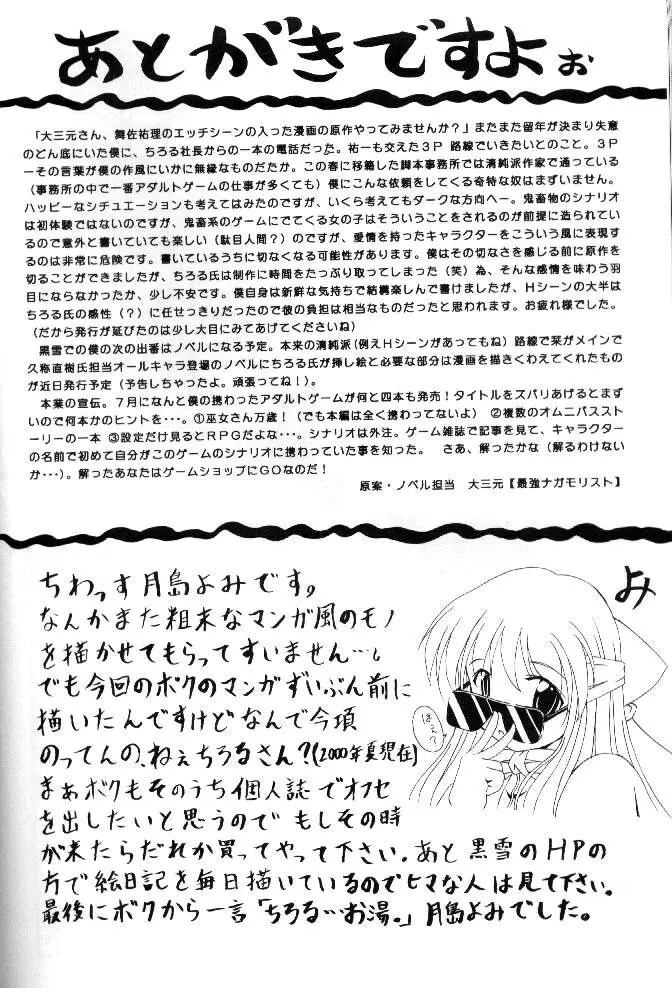 あとがきですよぉ
「大三元さん、舞佐祐理のエッチシーンの入った漫画の原作やってみませんか？」またまた留年が決まり失意
のどん底にいた僕に、ちろる社長からの一本の電話だった。祐一も交えた３Ｐ 路線でいきたいとのこと。３Ｐ
ーその言葉が僕の作風にいかに無縁なものだたか。この春に移籍した脚本事務所では清純派作家で通っている
（事務所の中で一番アダルトゲームの仕事が多くても）僕にこんな依頼をしてくる奇特な奴はまずいません。
ハッピーなシチュエーションも考えてはみたのですが、いくら考えてもダークな方向へー。鬼畜物のシナリオ
は初体験ではないのですが、鬼畜系のゲームにでてくる女の子はそういうことをされるのが前提に造られてい
るので意外と書いていても楽しい（駄目人間？）のですが、愛情を持ったキャラクターをこういう風に表現す
るのは非常に危険です。書いているうちに切なくなる可能性があります。僕はその切なさを感じる前に原作を
切ることができましたが、ちろる氏は制作に時間をたっぷり取ってしまった（笑）為、そんな感情を味わう羽
目にならなかったか、少し不安です。僕自身は新鮮な気持ちで結構楽しんで書けましたが、Ｈシーンの大半は
ちろる氏の感性（？）に任せっきりだったので彼の負担は相当なものだったと思われます。お疲れ様でした。
（だから発行が延びたのは少し大目にみてあげてくださいね）
黒雪での僕の次の出番はノベルになる予定。本来の清純派（例えＨシーンがあってもね）路線で栞がメインで
久称直樹氏担当オールキャラ登場のノベルにちろる氏が挿し絵と必要な部分は漫画を描きくわえてくれたもの
が近日発行予定（予告しちゃったよ。頑張ってね！）。
本業の宣伝。７月になんと僕の携わったアダルトゲームが何と四本も発売！タイトルをズバリあげるとまず
いので何本かのヒントを･･･。①巫女さん万歳！（でも本編は全く携わってないよ） ②複数のオムニバススト
ーリーの一本 ③設定だけ見るとＲＰＧだよな･･･。シナリオは外注。ゲーム雑誌で記事を見て、キャラクター
の名前で初めて自分がこのゲームのシナリオに携わっていた事を知った。 さあ、解ったかな（解るわけない
か･･･）。解ったあなたはゲームショップにＧＯなのだ！
原案・ノベル担当 大三元【最強ナガモリスト】
ちわっす月島よみです。
なんかまた粗末なマンガ風のモノ
を描かせてもらってすいません…。
でも今回のボクのマンガずいぶん前に
描いたんですけどなんで今頃
のってんの、ねぇちろるさん？(2000年夏現在)
まぁボクもそのうち個人誌でオフセ
を出したいと思うので もしその時
が来たらだれか買ってやって下さい。あと 黒雪のＨＰの
方で絵日記を毎日描いているのでヒマな人は見て下さい。
最後にボクから一言「ちろる…お湯。」月島よみでした。
よみ